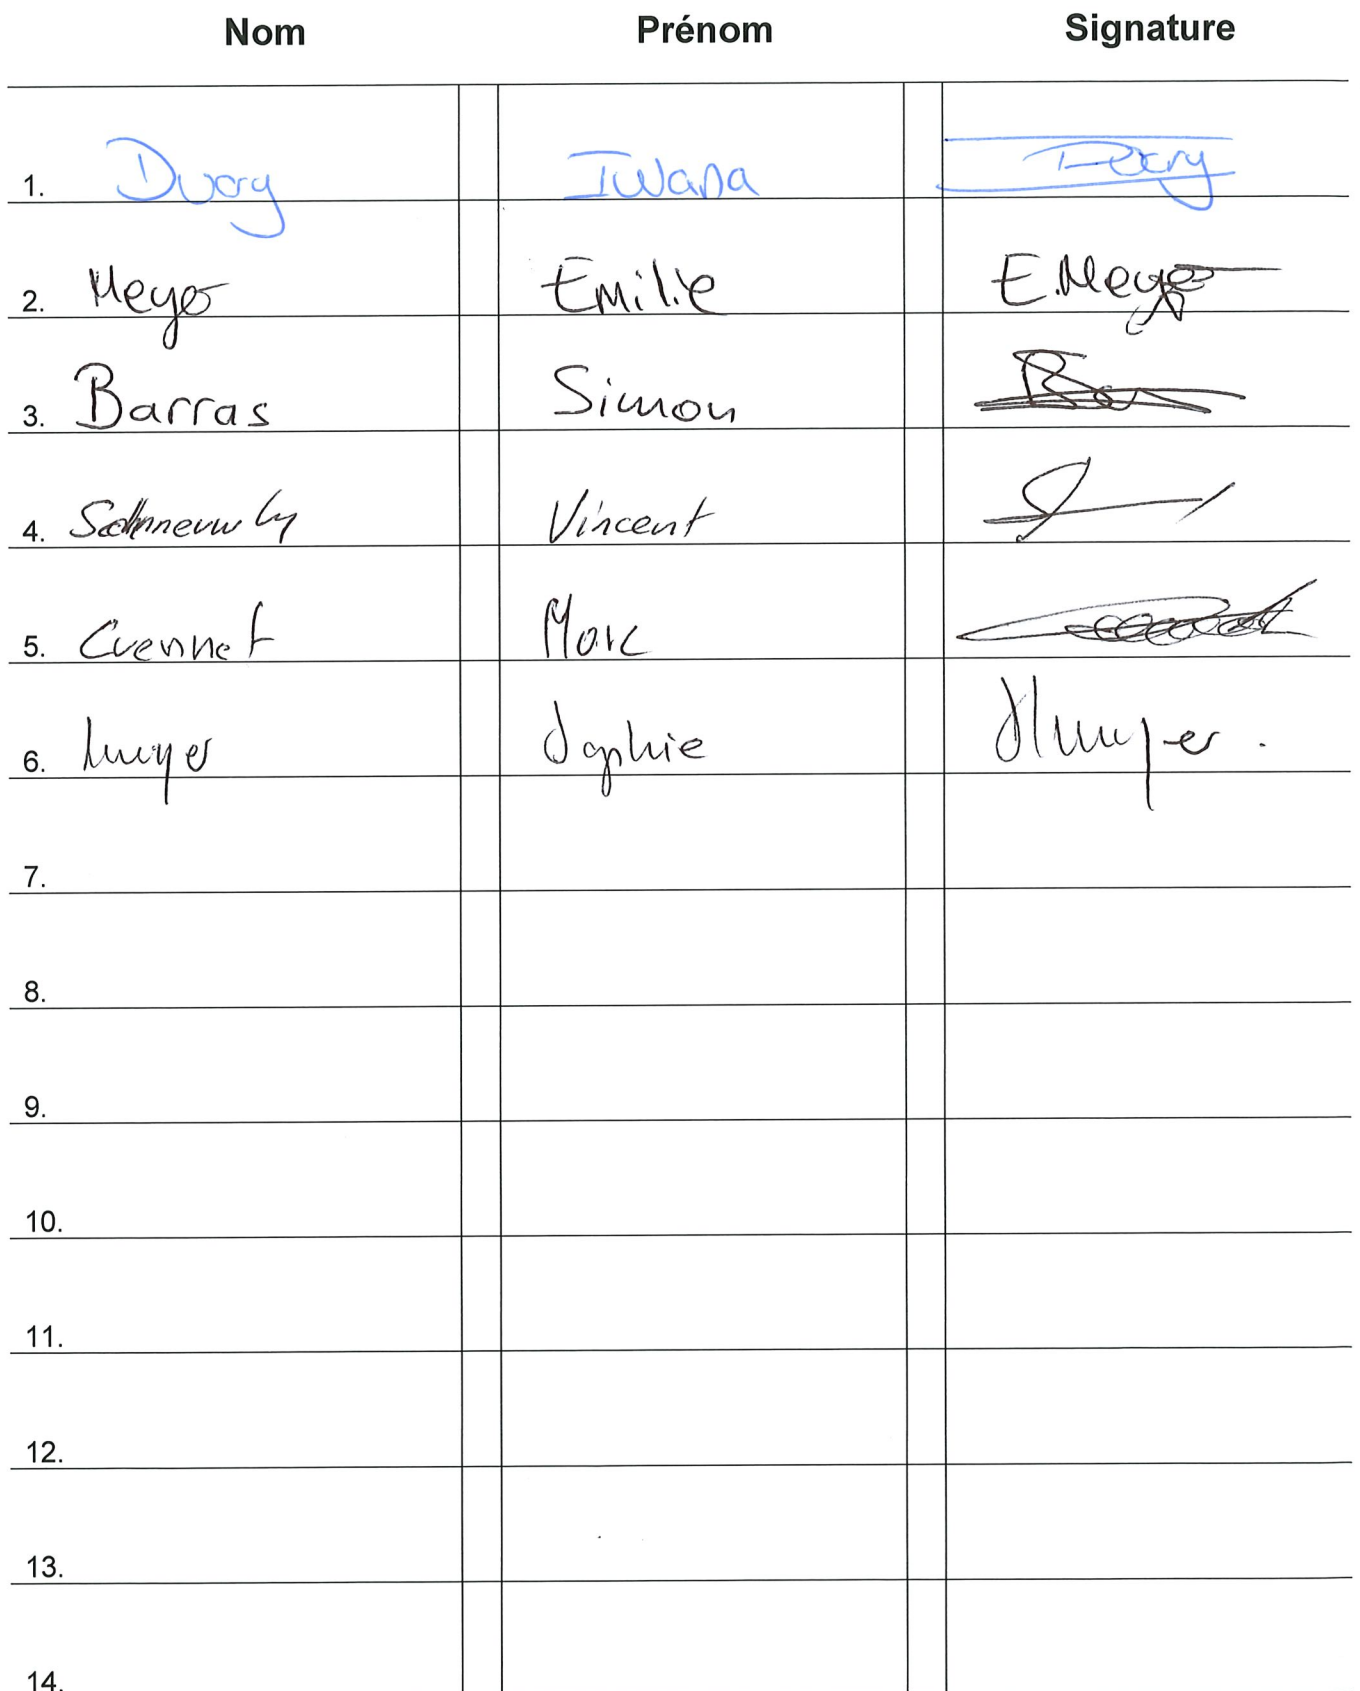 Nom Prénom Signature
1. Ducry Iwana Ducry
2. Meyer Emilie E.Meyer
3. Barras Simon
4. Schneuwly Vincent
5. Cuennet Marc
6. Sophie
7.
8.
9.
10.
11.
12.
13.
14.